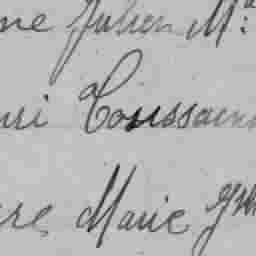 ne Julien Mª:
nri Toussain
re Marie